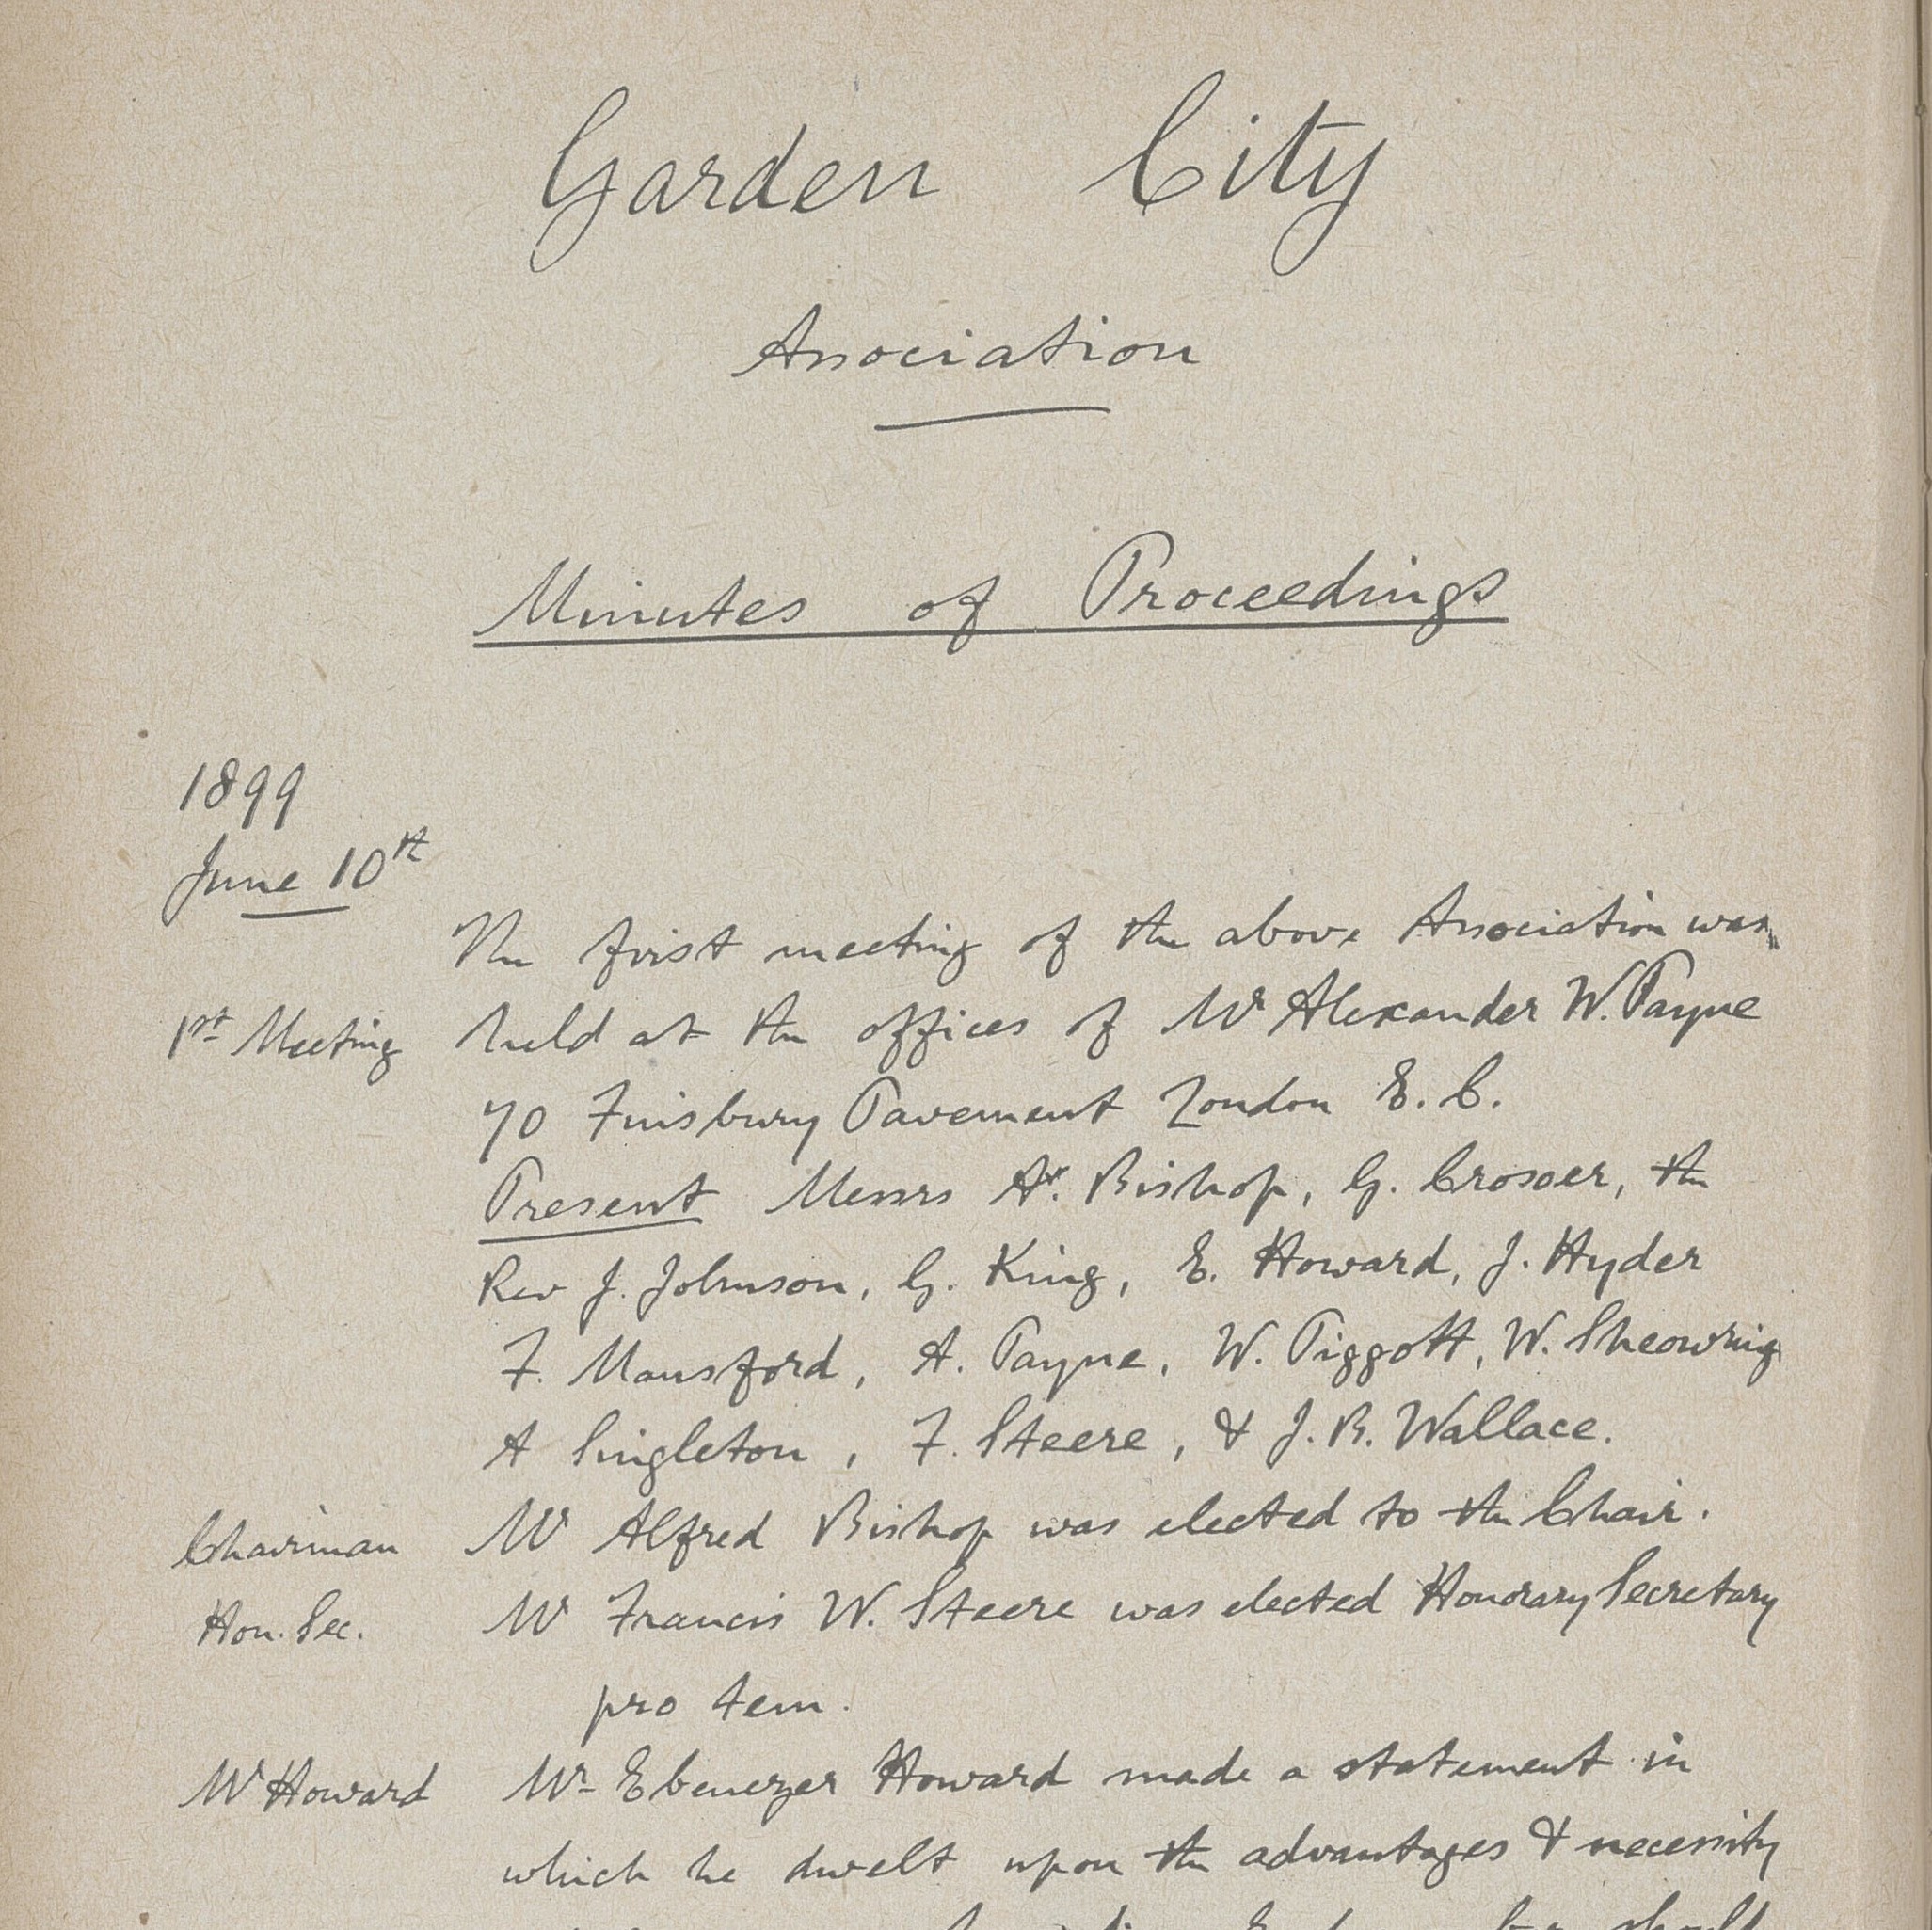 Garden City
Association
Minutes of Proceedings
1899
June 10th
The first meeting of the above Association was
1st Meeting held at the offices of Mr Alexander W. Payne
70 Finsbury Pavement London E. C.
Present Messrs A. Bishop, G. Crosoer, the
Rev J. Johnson, G. King, E. Howard, J. Hyder
F. Mansford, A. Payne, W. Piggott, W. Sheowring
A Singleton, F. Steere, & J. B. Wallace.
Chairman Mr Alfred Bishop was elected to the Chair.
Hon. Sec. Mr Francis W. Steere was elected Honorary Secretary
pro tem.
Mr Howard Mr Ebenezer Howard made a statement in
which he dwelt upon the advantages & necessity
should